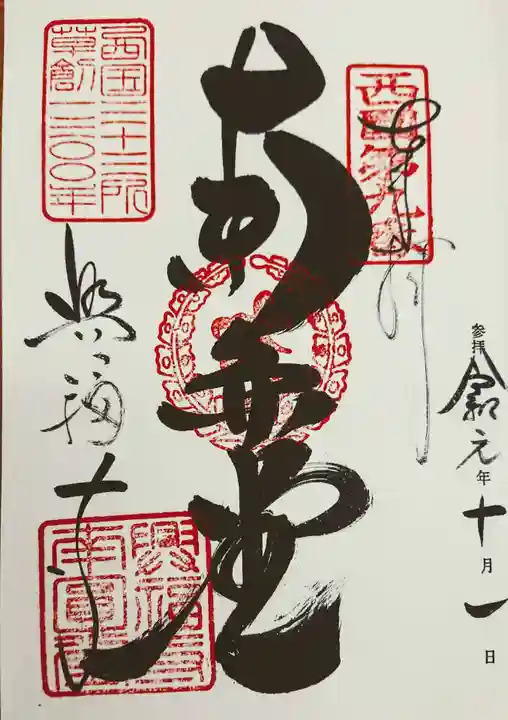 参拝 令和元年十月一日
奉拝
西国第九番
南円堂
西国三十三所
草創一三〇〇年
興福寺
興福寺
南円堂